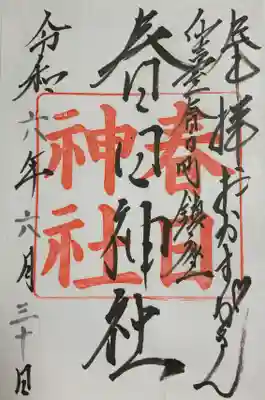 奉拝 おかすがさん
仙臺春日町鎮座
春日神社
春日
神社
令和六年六月三十日